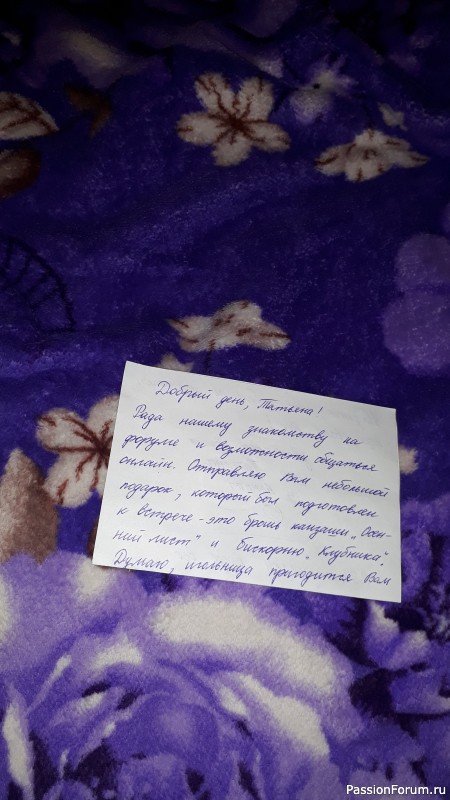 Добрый день, Татьяна!
Рада нашему знакомству на
форуме и возможности общаться
онлайн. Отправляю Вам небольшой
подарок, который был подготовлен
к встрече - это брошь канзаши „Осен-
ний лист" и бискорню „Клубника".
Думаю, игольница пригодится Вам
PassionForum.ru